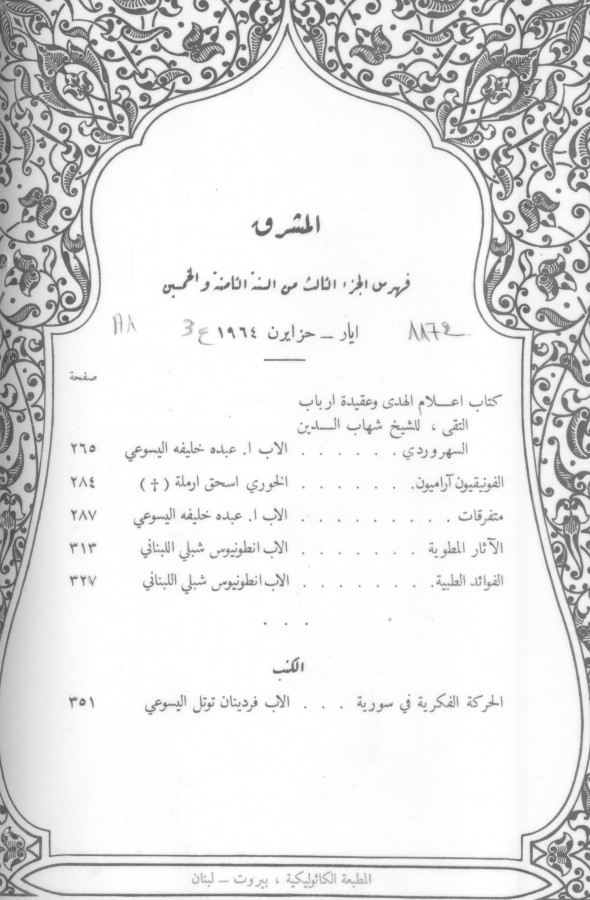 المشرق
فهرس الجزء الثالث من السنة الثامنة والخمسين
ايار – حزايرن ١٩٦٤
صفحة
كتاب اعلام الهدى وعقيدة ارباب
التقى ، للشيخ شهاب الدين
السهروردي . . . . . . الاب ا. عبده خليفه اليسوعي ٢٦٥
الفونيقيون آراميون. . . . . . . الخوري اسحق ارملة (†) ٢٨٤
متفرقات . . . . . . . . . الاب ا. عبده خليفه اليسوعي ٢٨٧
الآثار المطوية . . . . . . . الاب انطونيوس شبلي اللبناني ٣١٣
الفوائد الطبية. . . . . . . . الاب انطونيوس شبلي اللبناني ٣٢٧
. . .
الكتب
الحركة الفكرية في سورية . . . الاب فردينان توتل اليسوعي ٣٥١
المطبعة الكاثوليكية ، بيروت – لبنان